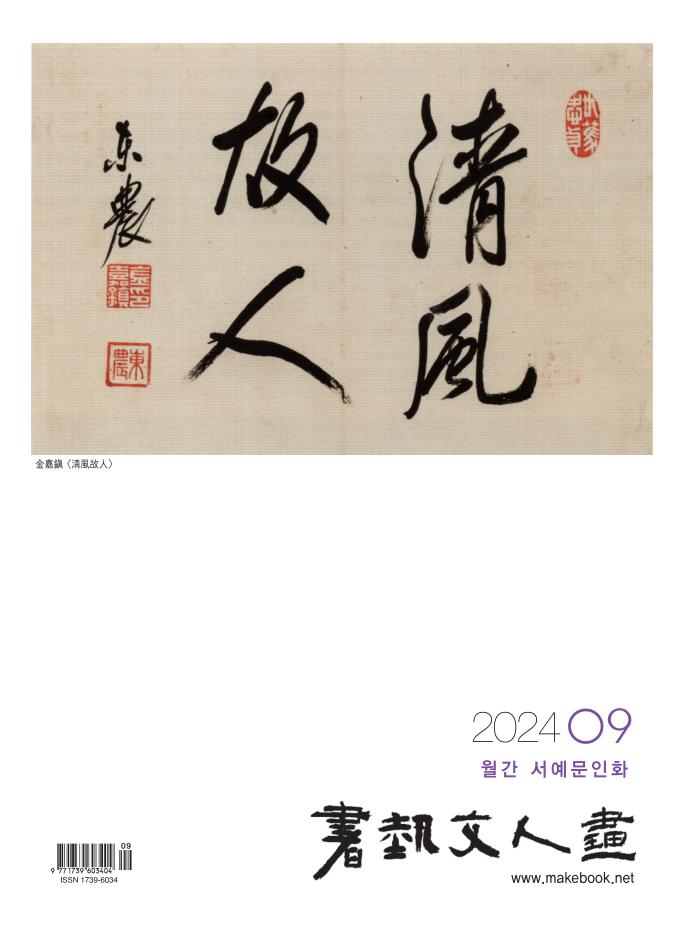 清風
故人
东農
金印
嘉鎭
東農
金嘉鎭〈淸風故人〉
2024 09
월간 서예문인화
書埶文人畫
www.makebook.net
09
9 771739 603404
ISSN 1739-6034